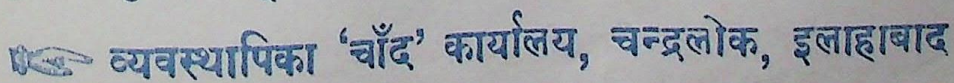 ☞ व्यवस्थापिका ‘चाँद’ कार्यालय, चन्द्रलोक, इलाहाबाद